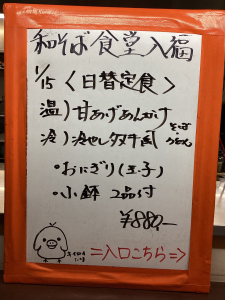 和そば食堂入福
1/15 〈日替定食〉
温) 甘あげあんかけ
冷) 冷やしタヌキ風
そば
うどん
・おにぎり(玉子)
・小鉢 2品付
¥880-
⇒入口こちら⇒